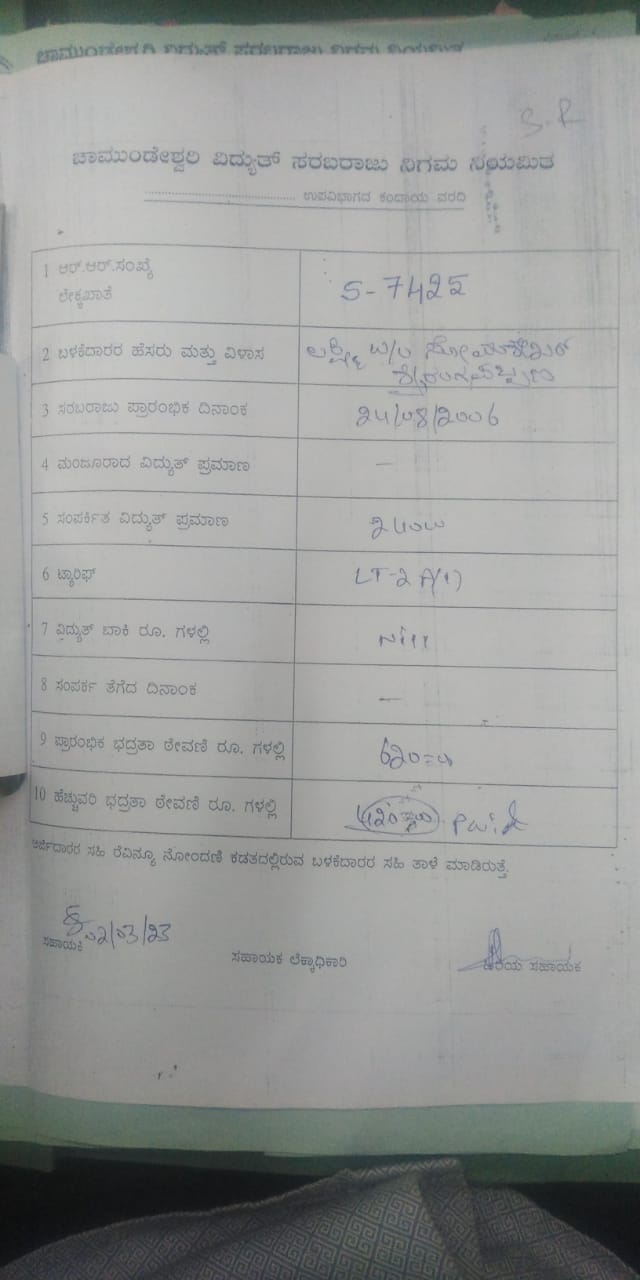 S.R
ಚಾಮುಂಡೇಶ್ವರಿ ವಿದ್ಯುತ್ ಸರಬರಾಜು ನಿಗಮ ನಿಯಮಿತ
.......................................... ಉಪವಿಭಾಗದ ಕಂದಾಯ ವರದಿ
1 ಆರ್.ಆರ್.ಸಂಖ್ಯೆ
ಲೇಕ್ಕಖಾತೆ
S-7425
2 ಬಳಕೆದಾರರ ಹೆಸರು ಮತ್ತು ವಿಳಾಸ
ಲಕ್ಷ್ಮಿ w/o ಸೋಮಶೇಖರ್
ಶ್ರೀರಂಗಪಟ್ಟಣ
3 ಸರಬರಾಜು ಪ್ರಾರಂಭಿಕ ದಿನಾಂಕ
24/08/2006
4 ಮಂಜೂರಾದ ವಿದ್ಯುತ್ ಪ್ರಮಾಣ
—
5 ಸಂಪರ್ಕಿತ ವಿದ್ಯುತ್ ಪ್ರಮಾಣ
240w
6 ಟ್ಯಾರಿಫ್
LT-2 A(1)
7 ವಿದ್ಯುತ್ ಬಾಕಿ ರೂ. ಗಳಲ್ಲಿ
Nill
8 ಸಂಪರ್ಕ ತೆಗೆದ ದಿನಾಂಕ
—
9 ಪ್ರಾರಂಭಿಕ ಭದ್ರತಾ ಠೇವಣಿ ರೂ. ಗಳಲ್ಲಿ
620=00
10 ಹೆಚ್ಚುವರಿ ಭದ್ರತಾ ಠೇವಣಿ ರೂ. ಗಳಲ್ಲಿ
Paid
ಅರ್ಜಿದಾರರ ಸಹಿ ರೆವಿನ್ಯೂ ನೋಂದಣಿ ಕಡತದಲ್ಲಿರುವ ಬಳಕೆದಾರರ ಸಹಿ ತಾಳೆ ಮಾಡಿರುತ್ತೆ.
02/03/23
ಸಹಾಯಕ ಸಹಾಯಕ ಲೆಕ್ಕಾಧಿಕಾರಿ ಹಿರಿಯ ಸಹಾಯಕ